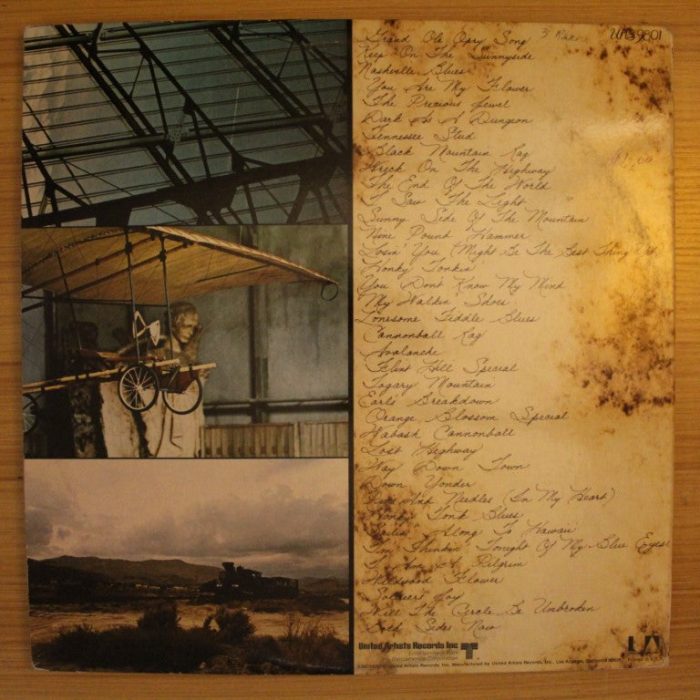 Grand Ole Opry Song
UAS 9801
Keep On The Sunnyside
Nashville Blues
You Are My Flower
The Precious Jewel
Dark As A Dungeon
Tennessee Stud
Black Mountain Rag
Wreck On The Highway
The End Of The World
I Saw The Light
Sunny Side Of The Mountain
Nine Pound Hammer
Losin' You (Might Be The Best Thing Yet
Honky Tonkin'
You Don't Know My Mind
My Walkin' Shoes
Lonesome Fiddle Blues
Cannonball Rag
Avalanche
Flint Hill Special
Togary Mountain
Earl's Breakdown
Orange Blossom Special
Wabash Cannonball
Lost Highway
Way Down Town
Down Yonder
Pins And Needles (In My Heart)
Honky Tonk Blues
Sailin' Along To Hawaii
I'm Thinkin' Tonight Of My Blue Eyes
I Am A Pilgrim
Wildwood Flower
Soldier's Joy
Will The Circle Be Unbroken
Both Sides Now
United Artists Records Inc
UA